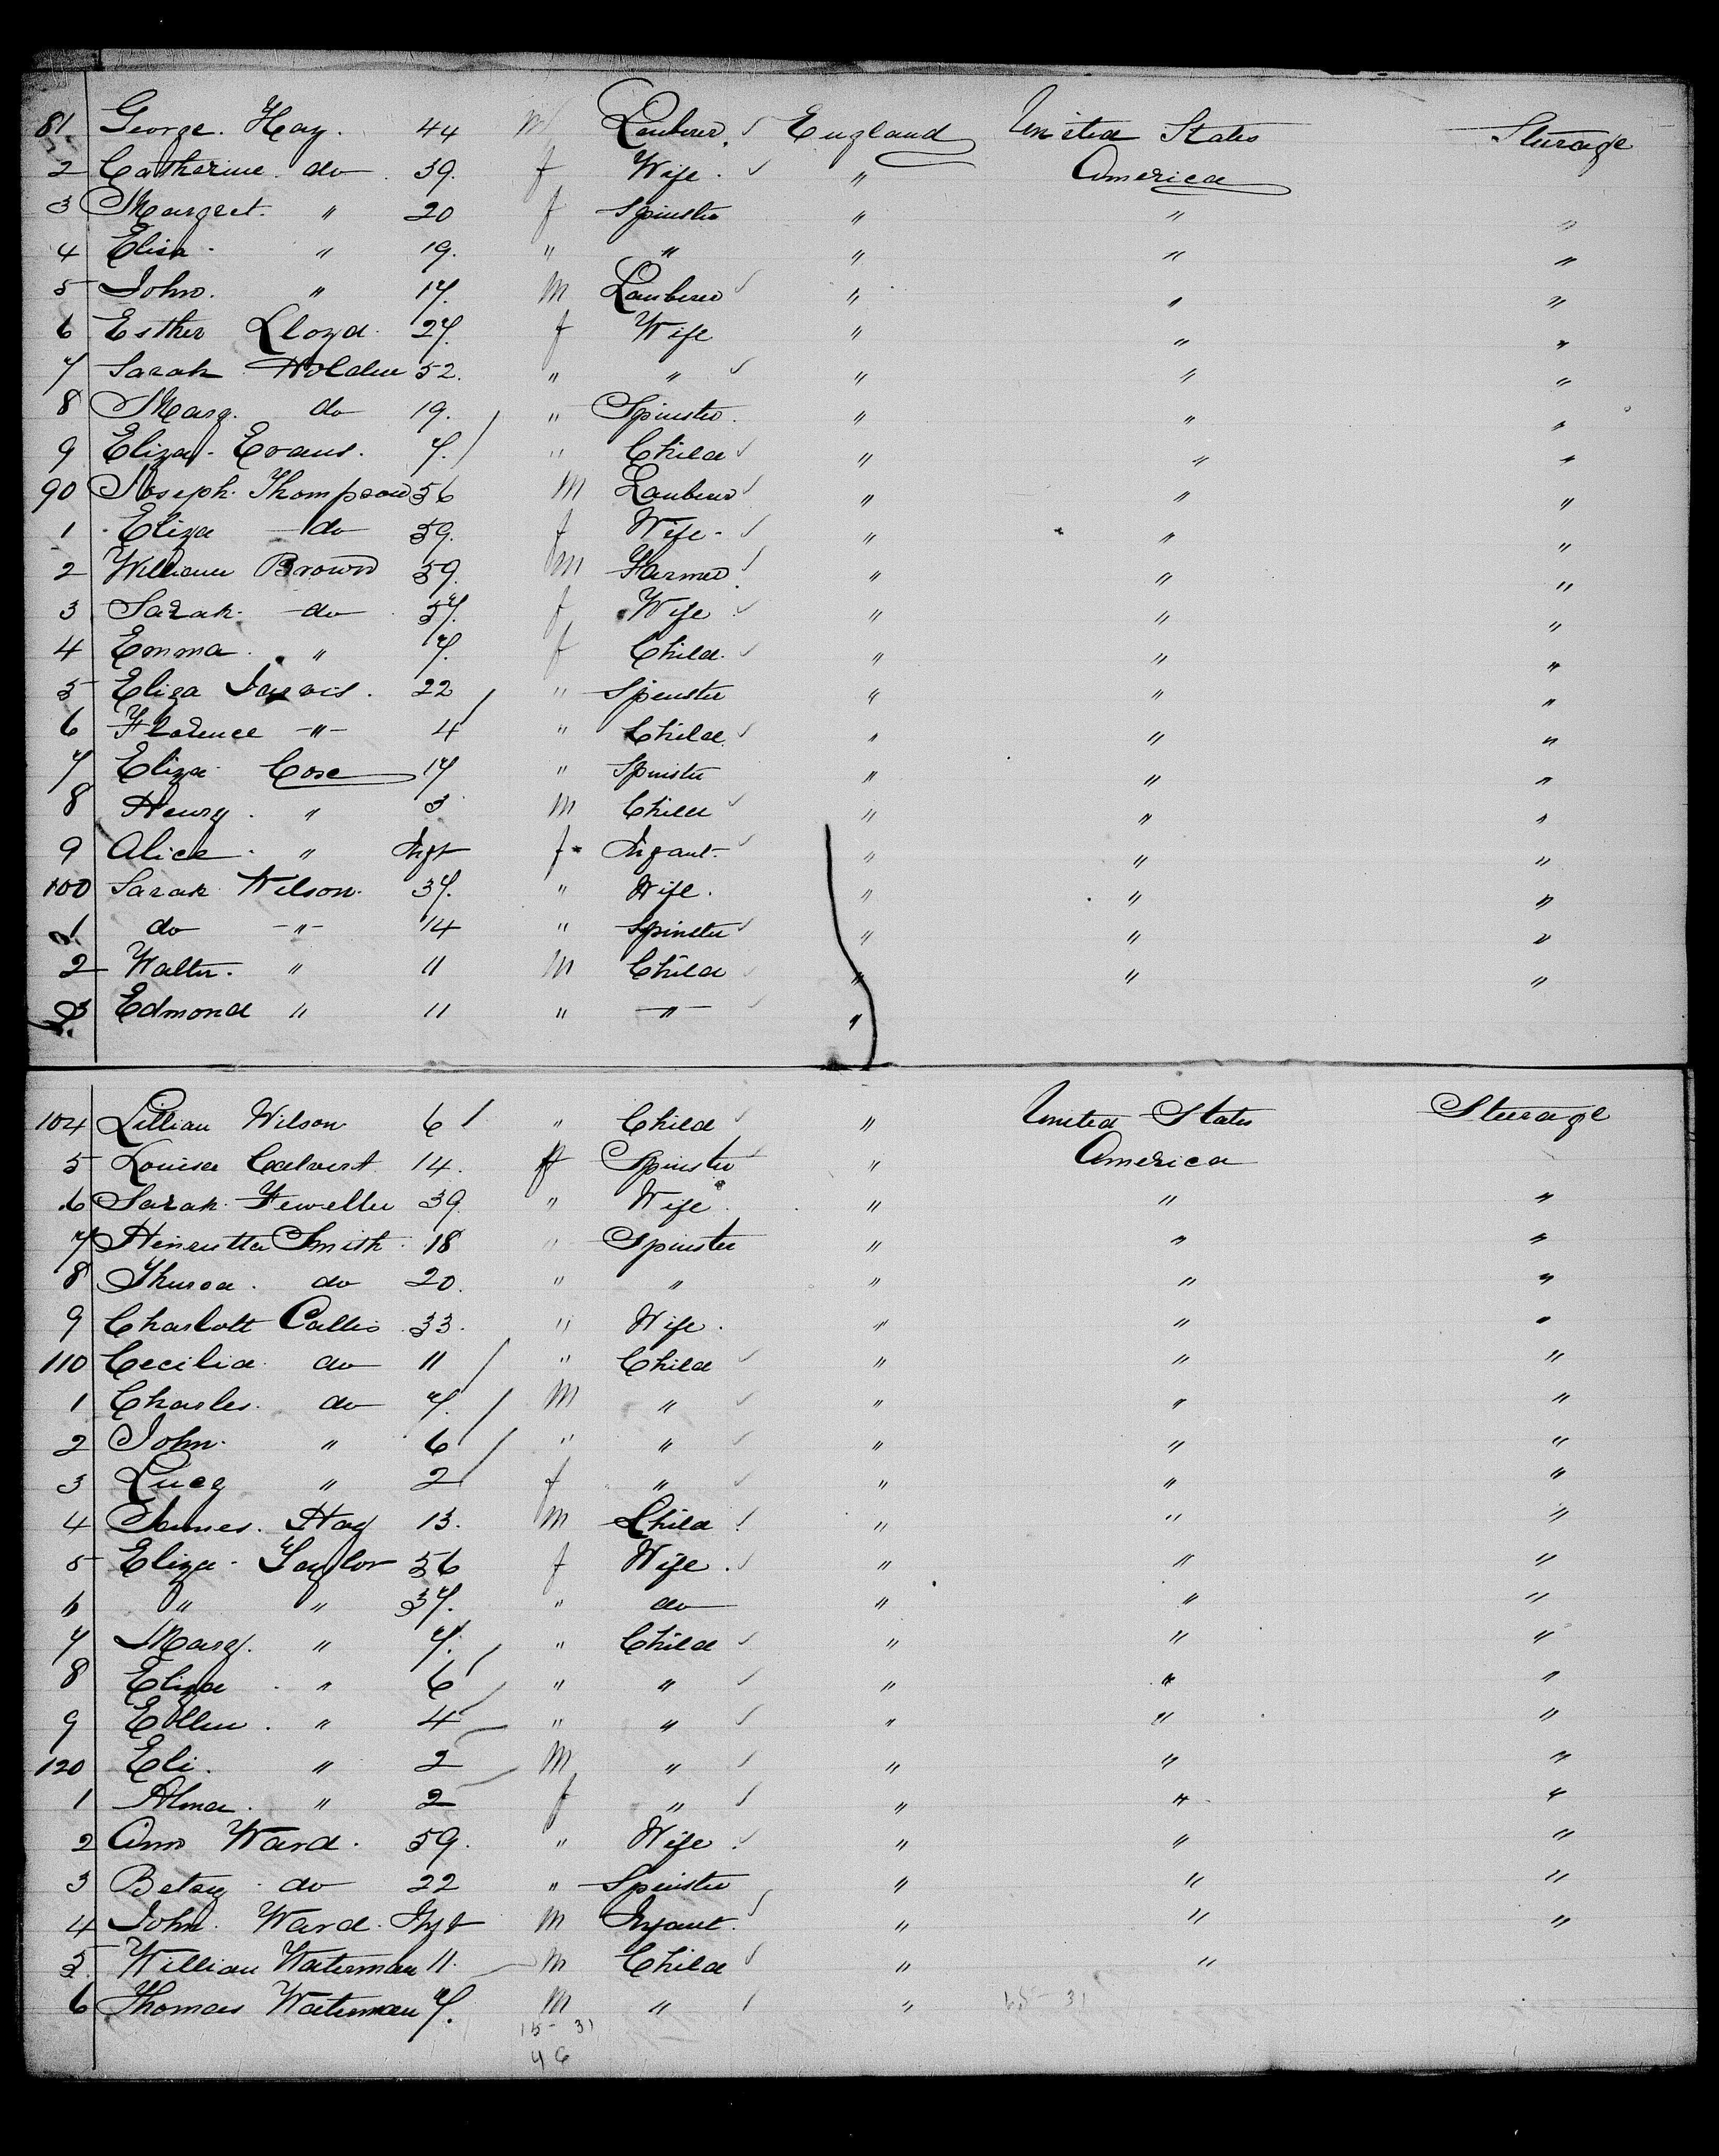 81 George. Hay. 44 M Lauberer England United States Sturage
2 Catherine do 39. f Wife. " America
3 Margret. " 20 f Spinster " " "
4 Elisa " 19. " " " " "
5 John. " 17. M Lauberer " " "
6 Esther Lloyd. 27. f Wife " " "
7 Sarah Holden 52. " " " " "
8 Marg. do 19. " Spinster. " " "
9 Eliza. Evans. 7. " Child " " "
90 Joseph. Thompson 56 M Lauberer " " "
1 Eliza do 59. f Wife. " " "
2 William Brown 59. M Farmer " " "
3 Sarah. do 57. f Wife " " "
4 Emma. " 7. f Child. " " "
5 Eliza Jarvis. 22 " Spenster " " "
6 Florence " 4 " Child " " "
7 Eliza Cose 17 " Spinster " " "
8 Henry. " 3 M Child " " "
9 Alice " Inft f Infant. " " "
100 Sarah Wilson. 37. " Wife. " " "
1 do " 14 " Spinster " " "
2 Walter. " 11 M Child " " "
3 Edmond " 11 " " "
104 Lillian Wilson 6 " Child " United States Sturage
5 Louisa Calvert 14. f Spinster " America
6 Sarah. Feweller 39. " Wife. " " "
7 Henrietta Smith. 18 " Spinster " " "
8 do 20. " " " " "
9 Charlott Callis 33. " Wife. " " "
110 Cecilia do 11 " Child " " "
1 Charles. do 7. M " " " "
2 John. " 6 " " " " "
3 Lucy " 2 f " " " "
4 James. Hay 13. M Child " " "
5 Eliza. Taylor 56 f Wife. " " "
6 " " 37. " do " " "
7 Mary. " 7. " Child " " "
8 Eliza " 6 " " " " "
9 Ellen. " 4 " " " " "
120 Eli. " 2 M " " " "
1 Alma. " 2 f " " " "
2 Ann Ward. 59. " Wife " " "
3 Betsy do 22 " Spinster " " "
4 John. Ward. Inft M Infant. " " "
5 William Waterman 11. M Child " "
6 Thomas Waterman 7. M " "
15 - 31
46